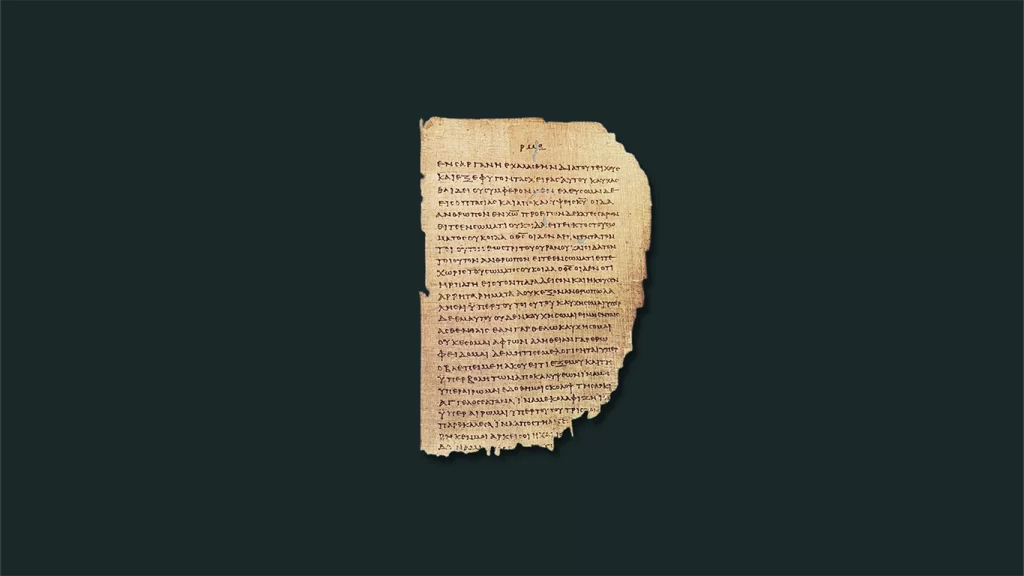 ρμε
ΕΝ ϹΑΡΓΑΝΗ ΕΧΑΛΑϹΘΗΝ ΔΙΑ ΤΟΥ ΤΕΙΧΟΥϹ
ΚΑΙ ΕΞΕΦΥΓΟΝ ΤΑϹ ΧΕΙΡΑϹ ΑΥΤΟΥ ΚΑΥΧΑϹ
ΘΑΙ ΔΕΙ ΟΥ ϹΥΝΦΕΡΟΝ ΜΕΝ ΕΛΕΥϹΟΜΑΙ ΔΕ
ΕΙϹ ΟΠΤΑϹΙΑϹ ΚΑΙ ΑΠΟΚΑΛΥΨΕΙϹ Κ̅Υ̅ ΟΙΔΑ
ΑΝΘΡΩΠΟΝ ΕΝ Χ̅Ω̅ ΠΡΟ ΕΤΩΝ ΔΕΚΑΤΕϹϹΑΡΩΝ
ΕΙΤΕ ΕΝ ϹΩΜΑΤΙ ΟΥΚ ΟΙΔΑ ΕΙΤΕ ΕΚΤΟϹ ΤΟΥ ϹΩ
ΜΑΤΟϹ ΟΥΚ ΟΙΔΑ Ο Θ̅Ϲ̅ ΟΙΔΕΝ ΑΡΠΑΓΕΝΤΑ ΤΟΝ
ΤΟΙΟΥΤΟΝ ΕΩϹ ΤΡΙΤΟΥ ΟΥΡΑΝΟΥ ΚΑΙ ΟΙΔΑ ΤΟΝ
ΤΟΙΟΥΤΟΝ ΑΝΘΡΩΠΟΝ ΕΙΤΕ ΕΝ ϹΩΜΑΤΙ ΕΙΤΕ
ΧΩΡΙϹ ΤΟΥ ϹΩΜΑΤΟϹ ΟΥΚ ΟΙΔΑ Ο Θ̅Ϲ̅ ΟΙΔΕΝ ΟΤΙ
ΗΡΠΑΓΗ ΕΙϹ ΤΟΝ ΠΑΡΑΔΕΙϹΟΝ ΚΑΙ ΗΚΟΥϹΕΝ
ΑΡΡΗΤΑ ΡΗΜΑΤΑ Α ΟΥΚ ΕΞΟΝ ΑΝΘΡΩΠΩ ΛΑ
ΛΗϹΑΙ ΥΠΕΡ ΤΟΥ ΤΟΙΟΥΤΟΥ ΚΑΥΧΗϹΟΜΑΙ ΥΠΕΡ
ΔΕ ΕΜΑΥΤΟΥ ΟΥΔΕΝ ΚΑΥΧΗϹΟΜΑΙ ΕΙ ΜΗ ΕΝ ΤΑΙϹ
ΑϹΘΕΝΕΙΑΙϹ ΕΑΝ ΓΑΡ ΘΕΛΩ ΚΑΥΧΗϹΟΜΑΙ
ΟΥΚ ΕϹΟΜΑΙ ΑΦΡΩΝ ΑΛΗΘΕΙΑΝ ΓΑΡ ΕΡΩ
ΦΕΙΔΟΜΑΙ ΔΕ ΜΗ ΤΙϹ ΕΜΕ ΛΟΓΙϹΗΤΑΙ ΥΠΕΡ
Ο ΒΛΕΠΕΙ ΜΕ Η ΑΚΟΥΕΙ ΤΙ ΕΞ ΕΜΟΥ ΚΑΙ ΤΗ
ΥΠΕΡΒΟΛΗ ΤΩΝ ΑΠΟΚΑΛΥΨΕΩΝ ΙΝΑ ΜΗ
ΥΠΕΡΑΙΡΩΜΑΙ ΕΔΟΘΗ ΜΟΙ ϹΚΟΛΟΨ ΤΗ ϹΑΡΚΙ
ΑΓΓΕΛΟϹ ϹΑΤΑΝΑ ΙΝΑ ΜΕ ΚΟΛΑΦΙΖΗ ΙΝΑ
ΥΠΕΡΑΙΡΩΜΑΙ ΥΠΕΡ ΤΟΥΤΟΥ ΤΡΙϹ
ΠΑΡΕΚΑΛΕϹΑ ΙΝΑ ΑΠΟϹΤΗ
ΚΕΝ ΜΟΙ ΑΡΚΕΙ ϹΟΙ Η ΧΑ